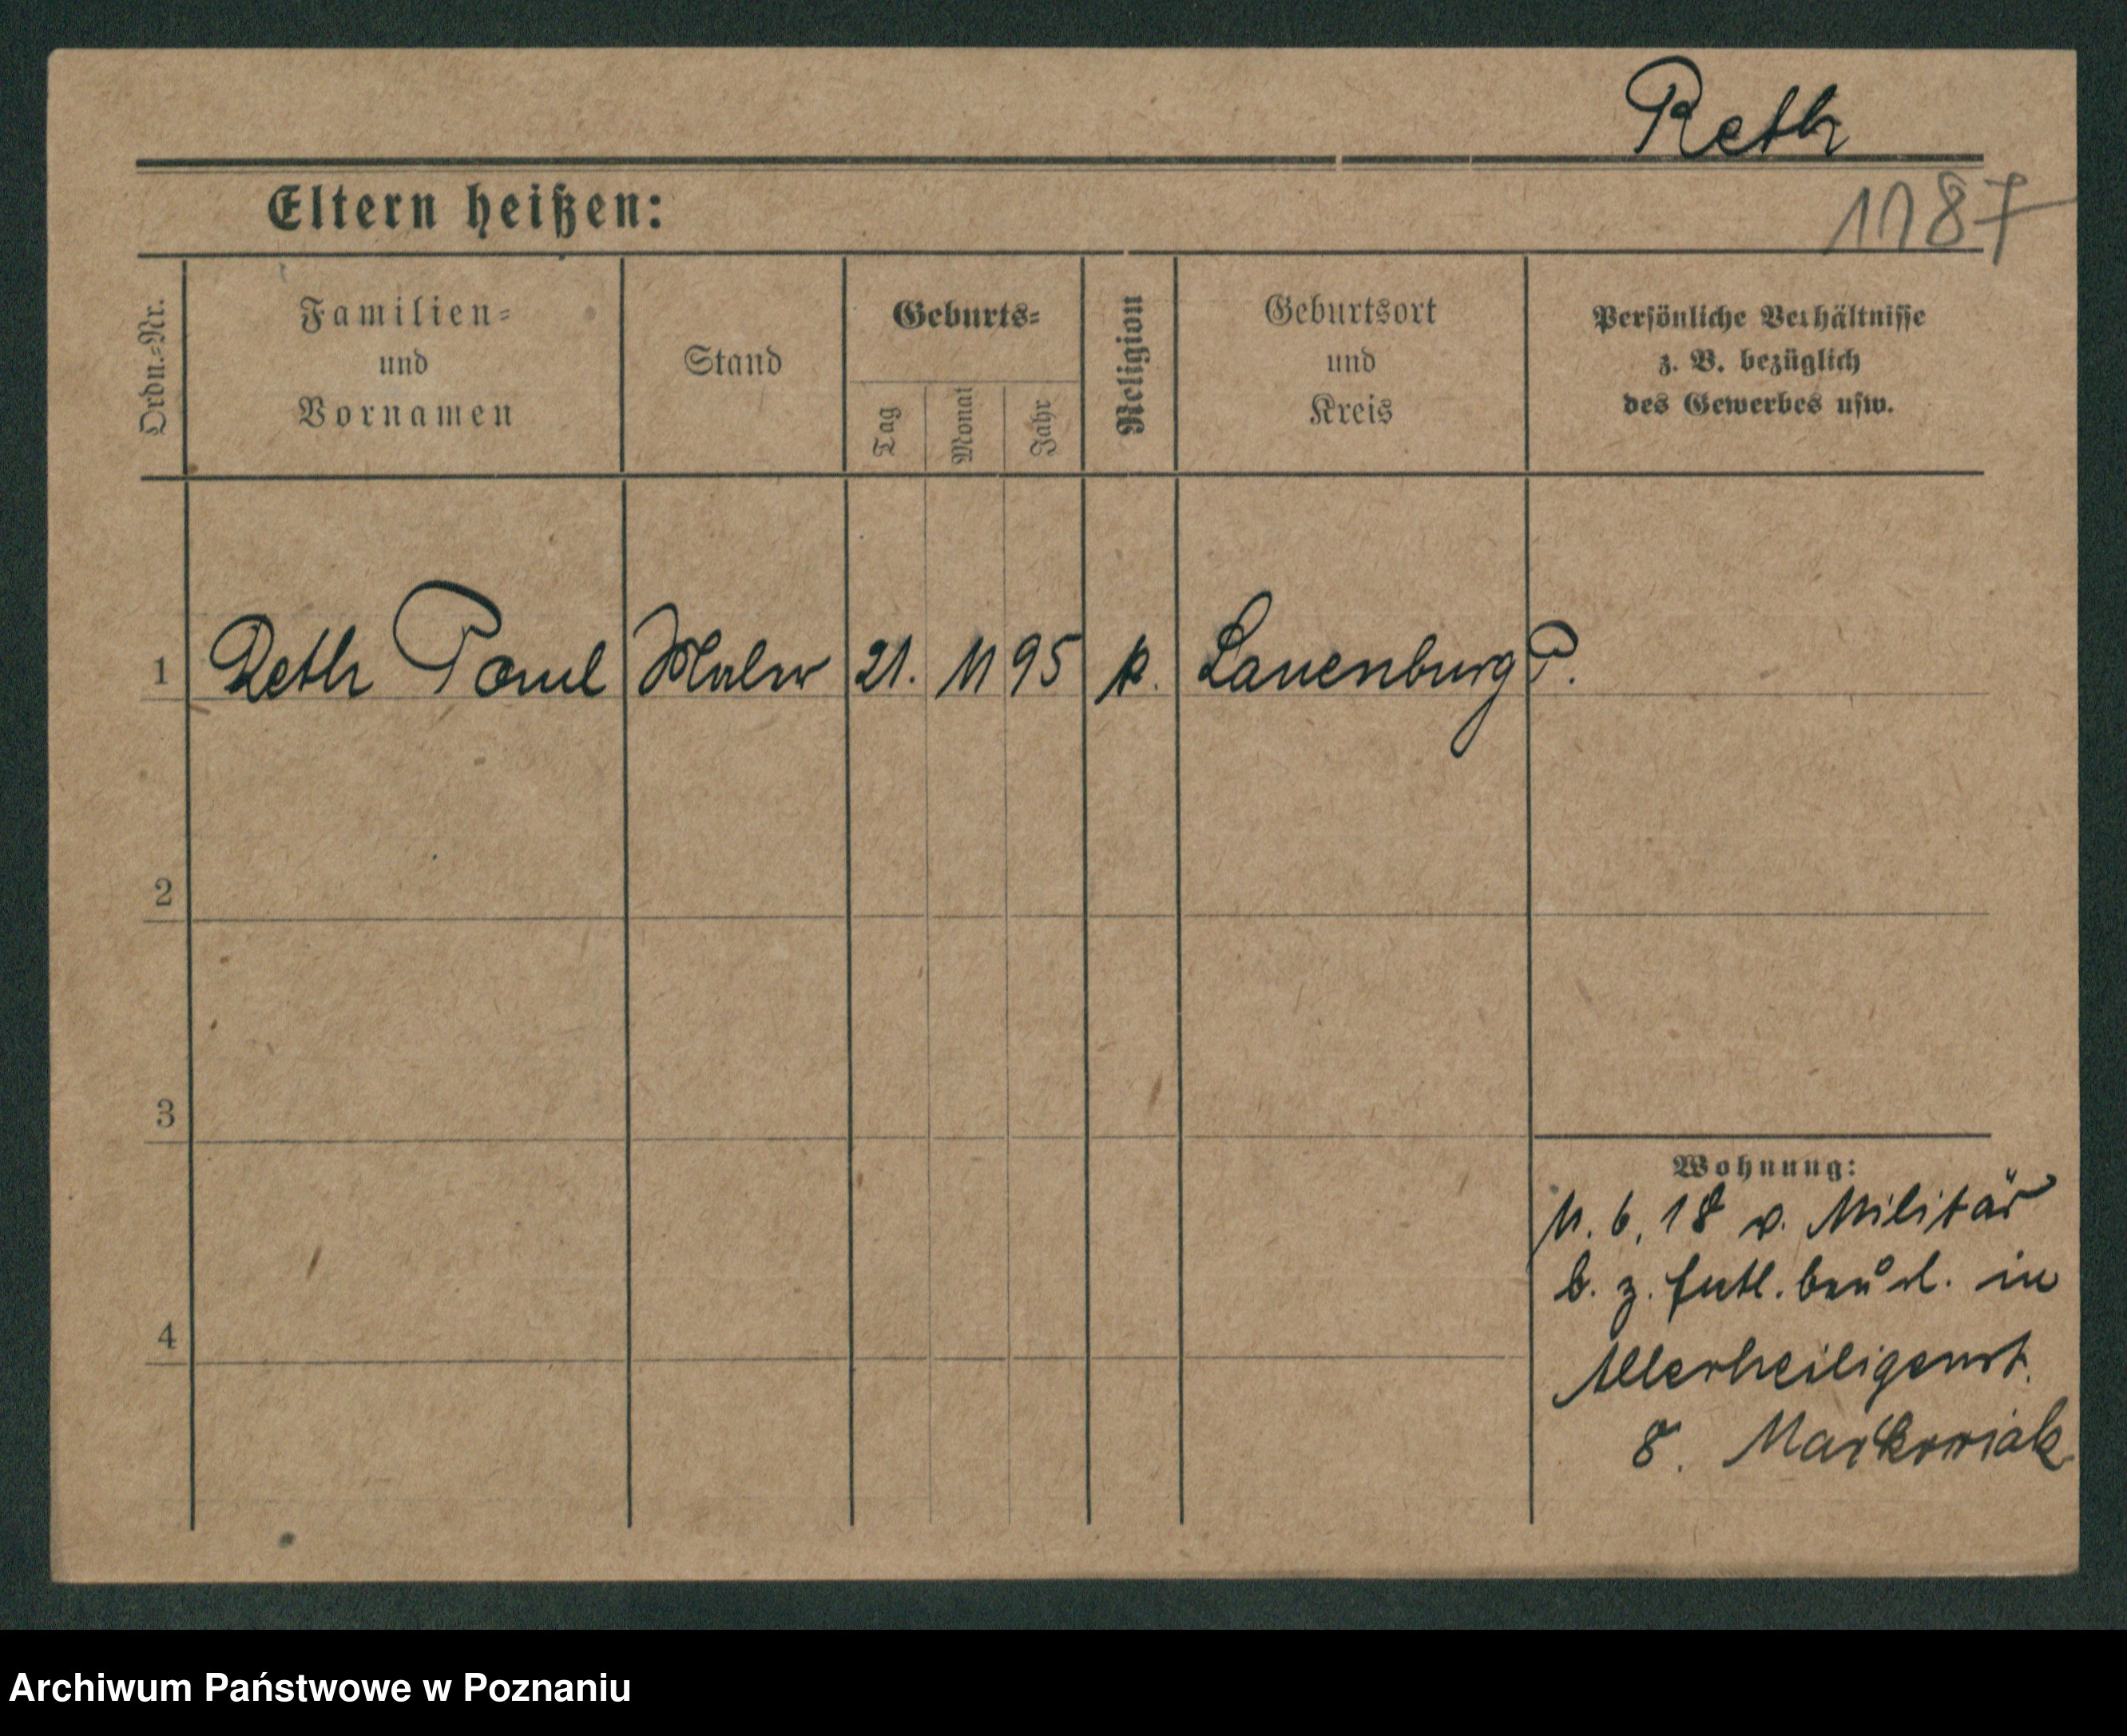 Reth
Eltern heißen:
1187
Ordn.-Nr.
Familien-
und
Vornamen
Stand
Geburts-
Tag
Monat
Jahr
Religion
Geburtsort
und
Kreis
Persönliche Verhältnisse
z. B. bezüglich
des Gewerbes usw.
1 Reth Paul Maler 21. 11 95 k. Lauenburg P.
2
3
4
Wohnung:
11. 6. 18 v. Militär
b. z. in
Allerheiligenst.
8. Markowiak
Archiwum Państwowe w Poznaniu